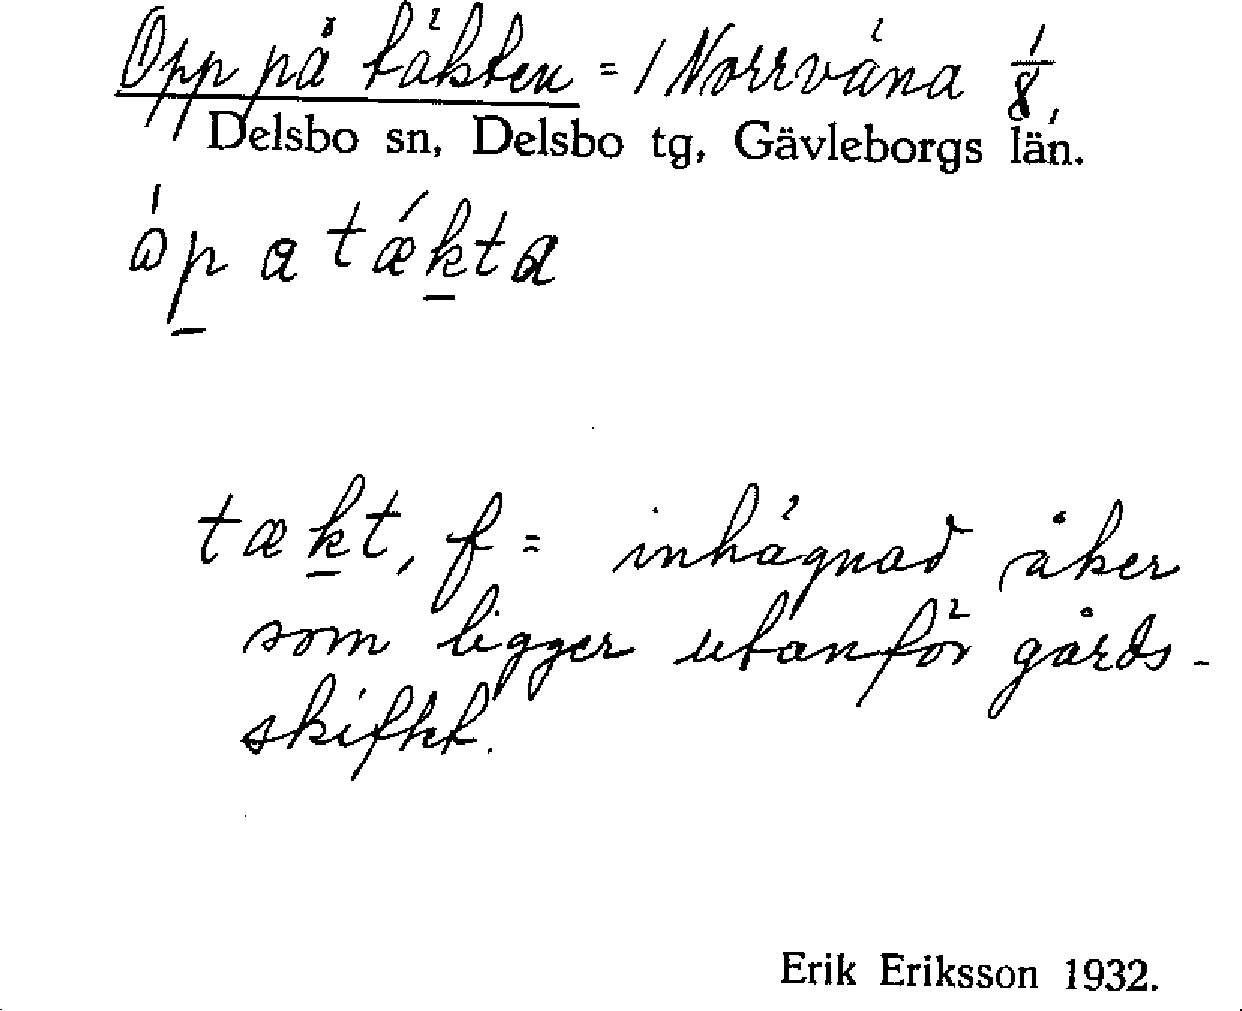 Opp på täkten = / Norrväna 1/8,
Delsbo sn, Delsbo tg, Gävleborgs län.
óp a tǽkta
tækt, f = inhägnad åker
som ligger utanför gårds-
skiftet.
Erik Eriksson 1932.